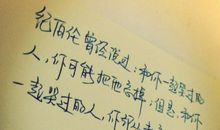 纪伯伦曾经说过：和你一起笑过的
人，你可能把他忘掉；但是，和你
一起哭过的人，你却